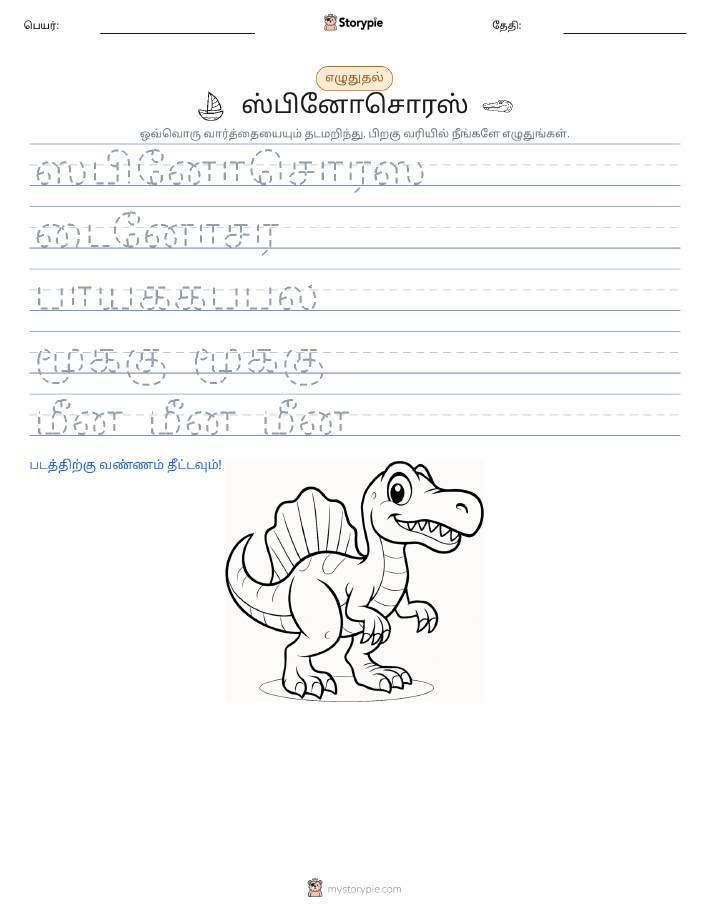 பெயர்: Storypie தேதி:
எழுதுதல்
ஸ்பினோசொரஸ்
ஒவ்வொரு வார்த்தையையும் தடமறிந்து, பிறகு வரியில் நீங்களே எழுதுங்கள்.
ஸபினோசொரஸ
டைனோசர
பாயககபபல
மூககு மூககு
மீன மீன மீன
படத்திற்கு வண்ணம் தீட்டவும்!
mystorypie.com